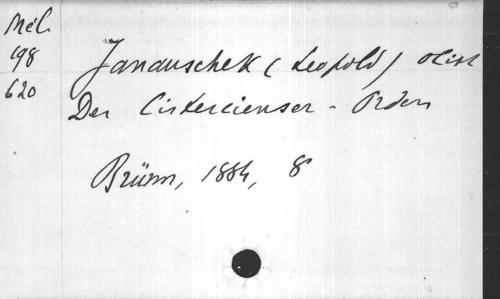 Mél.
198
620
Janauschek (Leopold) ocist
Der Cistercienser-Orden
Brünn, 1884, 8°